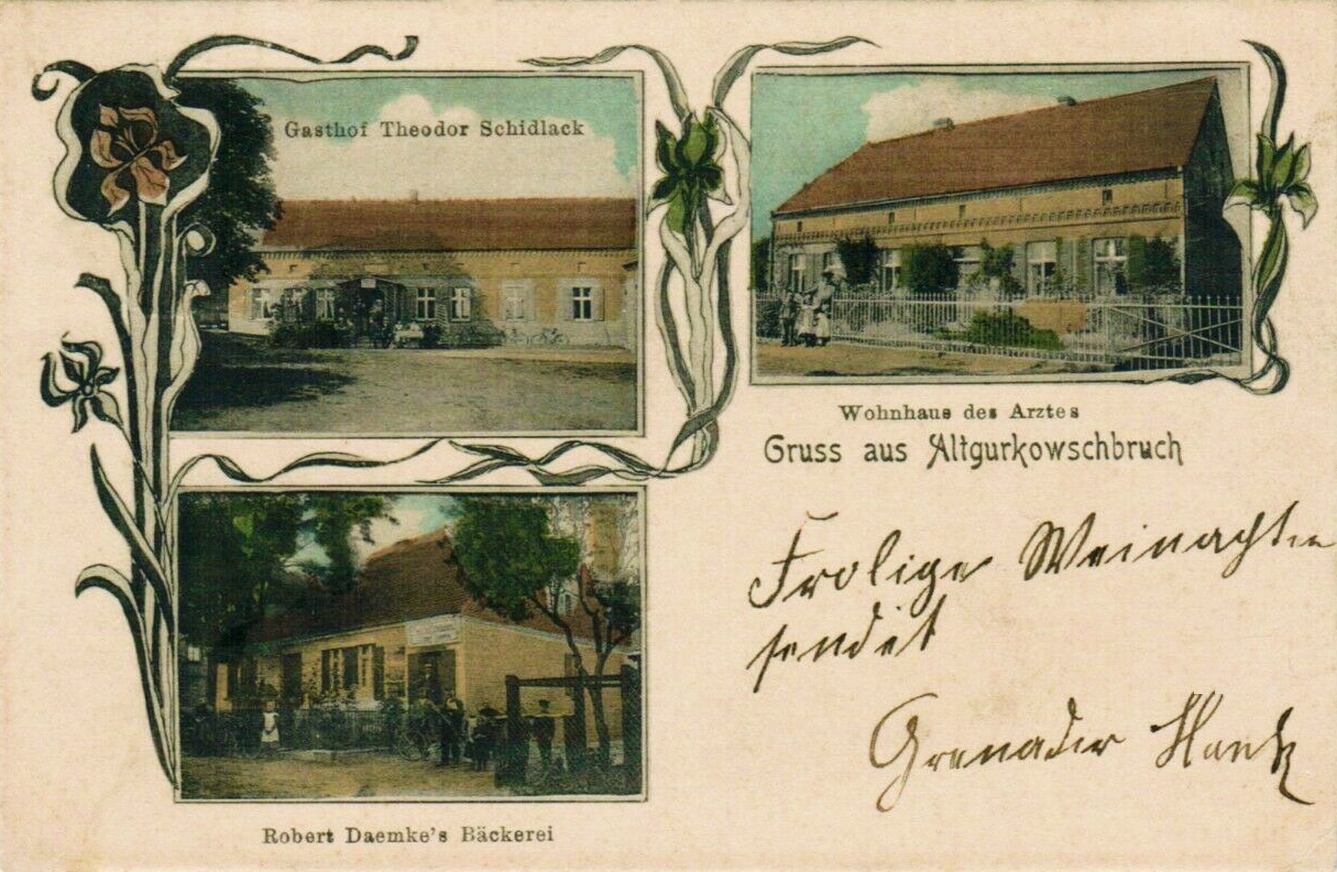 Gasthof Theodor Schidlack
Wohnhaus des Arztes
Gruss aus Altgurkowschbruch
Frolige Weinachten
sendet
Grenadier
Robert Daemke's Bäckerei